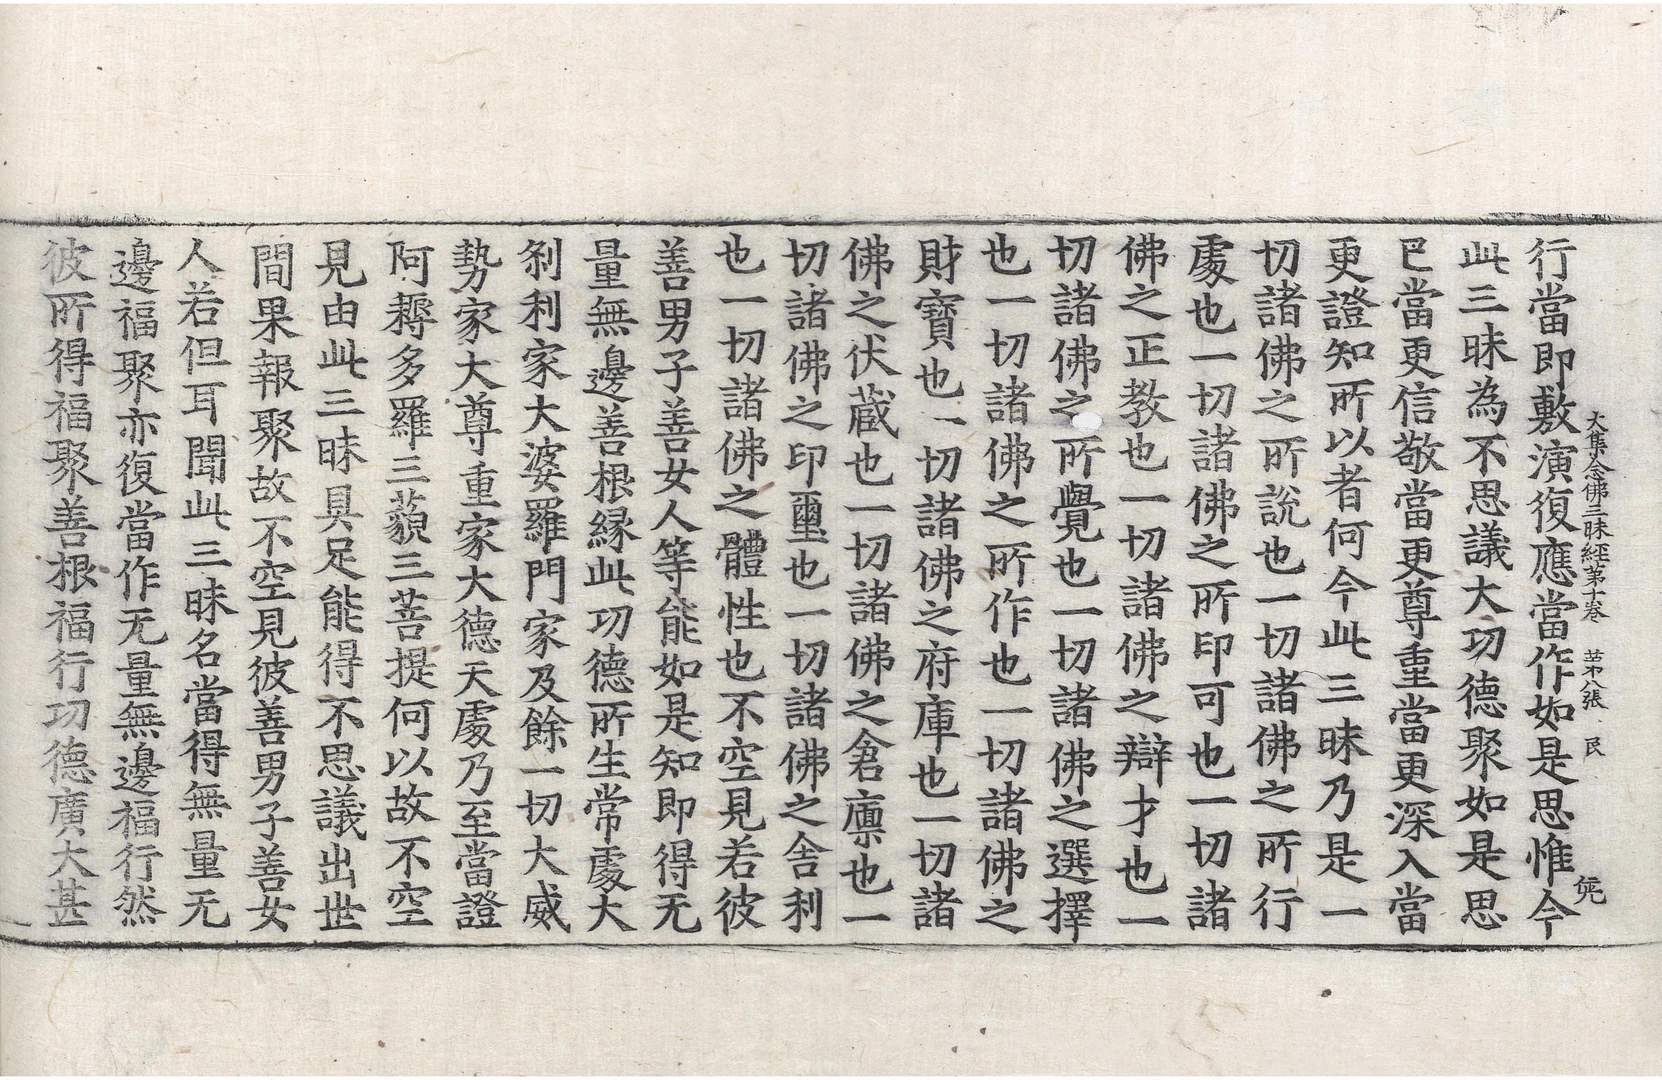 大集念佛三昧經第十卷　第八張　民
行當即敷演復應當作如是思惟今
此三昧為不思議大功德聚如是思
巳當更信敬當更尊重當更深入當
更證知所以者何今此三昧乃是一
切諸佛之所說也一切諸佛之所行
處也一切諸佛之所印可也一切諸
佛之正教也一切諸佛之辯才也一
切諸佛之所覺也一切諸佛之選擇
也一切諸佛之所作也一切諸佛之
財寶也一切諸佛之府庫也一切諸
佛之伏藏也一切諸佛之倉廩也一
切諸佛之印璽也一切諸佛之舍利
也一切諸佛之體性也不空見若彼
善男子善女人等能如是知即得无
量無邊善根緣此功德所生常處大
剎利家大婆羅門家及餘一切大威
勢家大尊重家大德天處乃至當證
阿耨多羅三藐三菩提何以故不空
見由此三昧具足能得不思議出世
間果報聚故不空見彼善男子善女
人若但耳聞此三昧名當得無量无
邊福聚亦復當作无量無邊福行然
彼所得福聚善根福行功德廣大甚